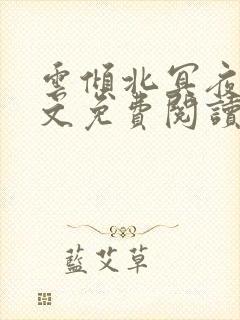 雲傾北冥夜
文免費閱讀
藍艾草